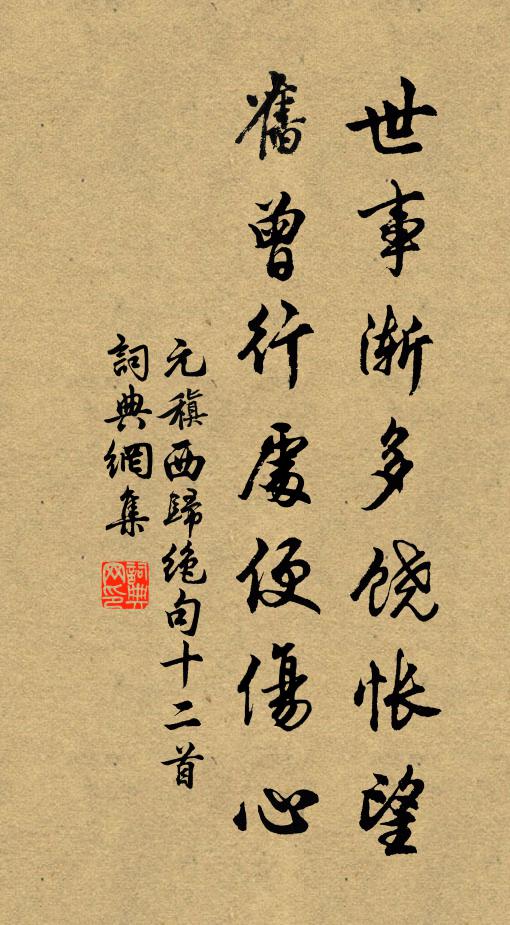 世事渐多饶怅望
舊曾行處便傷心
元稹西歸绝句十二首
詞典網集
詞典网印